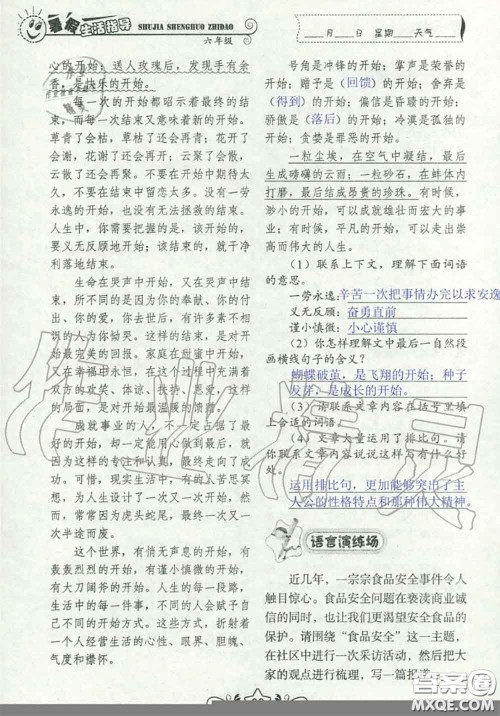 暑假生活指导
SHUJIA SHENGHUO ZHIDAO
六年级
心的开始；送人玫瑰后，发现手有余
香，是快乐的开始。
每一次的开始都昭示着最终的结
束，而每一次结束又意味着新的开始。
草青了会枯，草枯了还会再青；花开了
会谢，花谢了还会再开；云聚了会散，
云散了还会再聚。不要在开始中期待太
久，不要在结束中留恋太多。没有一劳
永逸的开始，也没有无法拯救的结束。
人生中，你需要把握的是，该开始的，
要义无反顾地开始；该结束的，就干净
利落地结束。
生命在哭声中开始，又在哭声中结
束，所不同的是因为你的奉献、你的付
出、你的爱，你会去世后，有很多哭的
人们为你恸哭。这样的结束，是对开
始最大的回报。家庭在甜蜜中开始，
又在幸福中永恒，在这个过程中充满着
双方的欢笑、体谅、扶持、恩爱，这样
的局面，是对开始最温暖的馈赠。
成就事业的人，不一定是赢在开
始，而是一定能用心做到最后，就因
为这样的专注和认真，最终成就了人生
的精彩。可是，现实生活中，有的人苦思冥
想，为人生设计了一次次开始，然
而，常常因为虎头蛇尾，最后一次又一
次半途而废。
这个世界，有悄无声息的开始，有
轰轰烈烈的开始，有谨小慎微的开始，
有大刀阔斧的开始。人生中的每一步，
生活中的每一件事，不同的人会赋予它
不同的开始方式。这些方式，折射着一
个人经营生活的心性、眼界、胆魄、
气度和襟怀。
月 日 星期 天气
号角是冲锋的开始；掌声是荣誉的
开始；赠予是（回馈）的开始；舍弃是
（得到）的开始；偏信是昏聩的开始；
骄傲是（落后）的开始；冷漠是孤独的
开始；贪婪是罪恶的开始。
一粒尘埃，在空气中凝结，最后
生成磅礴的云雨；一粒砂石，在蚌体内
打磨，最后结成昂贵的珍珠。有时候，
渺小的开始，可以成就雄壮而宏大的事
业；有时候，平凡的开始，可以走出崇
高而伟大的人生。
（1）联系上下文，理解下面词语
的意思。
一劳永逸：辛苦一次把事情办完以求安逸
义无反顾：奋勇直前
谨小慎微：小心谨慎
（2）你怎样理解文中最后一自然段
画横线句子的含义？
蝴蝶破茧，是飞翔的开始；种子
发芽，是成长的开始。
（3）请联系文章内容在括号里填
上合适的词语。
（4）文章大量运用了排比句。请
你联系文章内容说说这样写有什么好
处。
运用排比句，更加能够突出了主
人公的性格特点和那种伟大精神。
语言演练场
近几年，一宗宗食品安全事件令人
触目惊心。食品安全问题在亵渎商业诚
信的同时，也让我们更渴望食品安全的
保护。请围绕“食品安全”这一主题，
在社区中进行一次采访活动，然后把大
家的观点进行梳理，写一篇报道。
作业精灵
答案圈
MXQE.COM